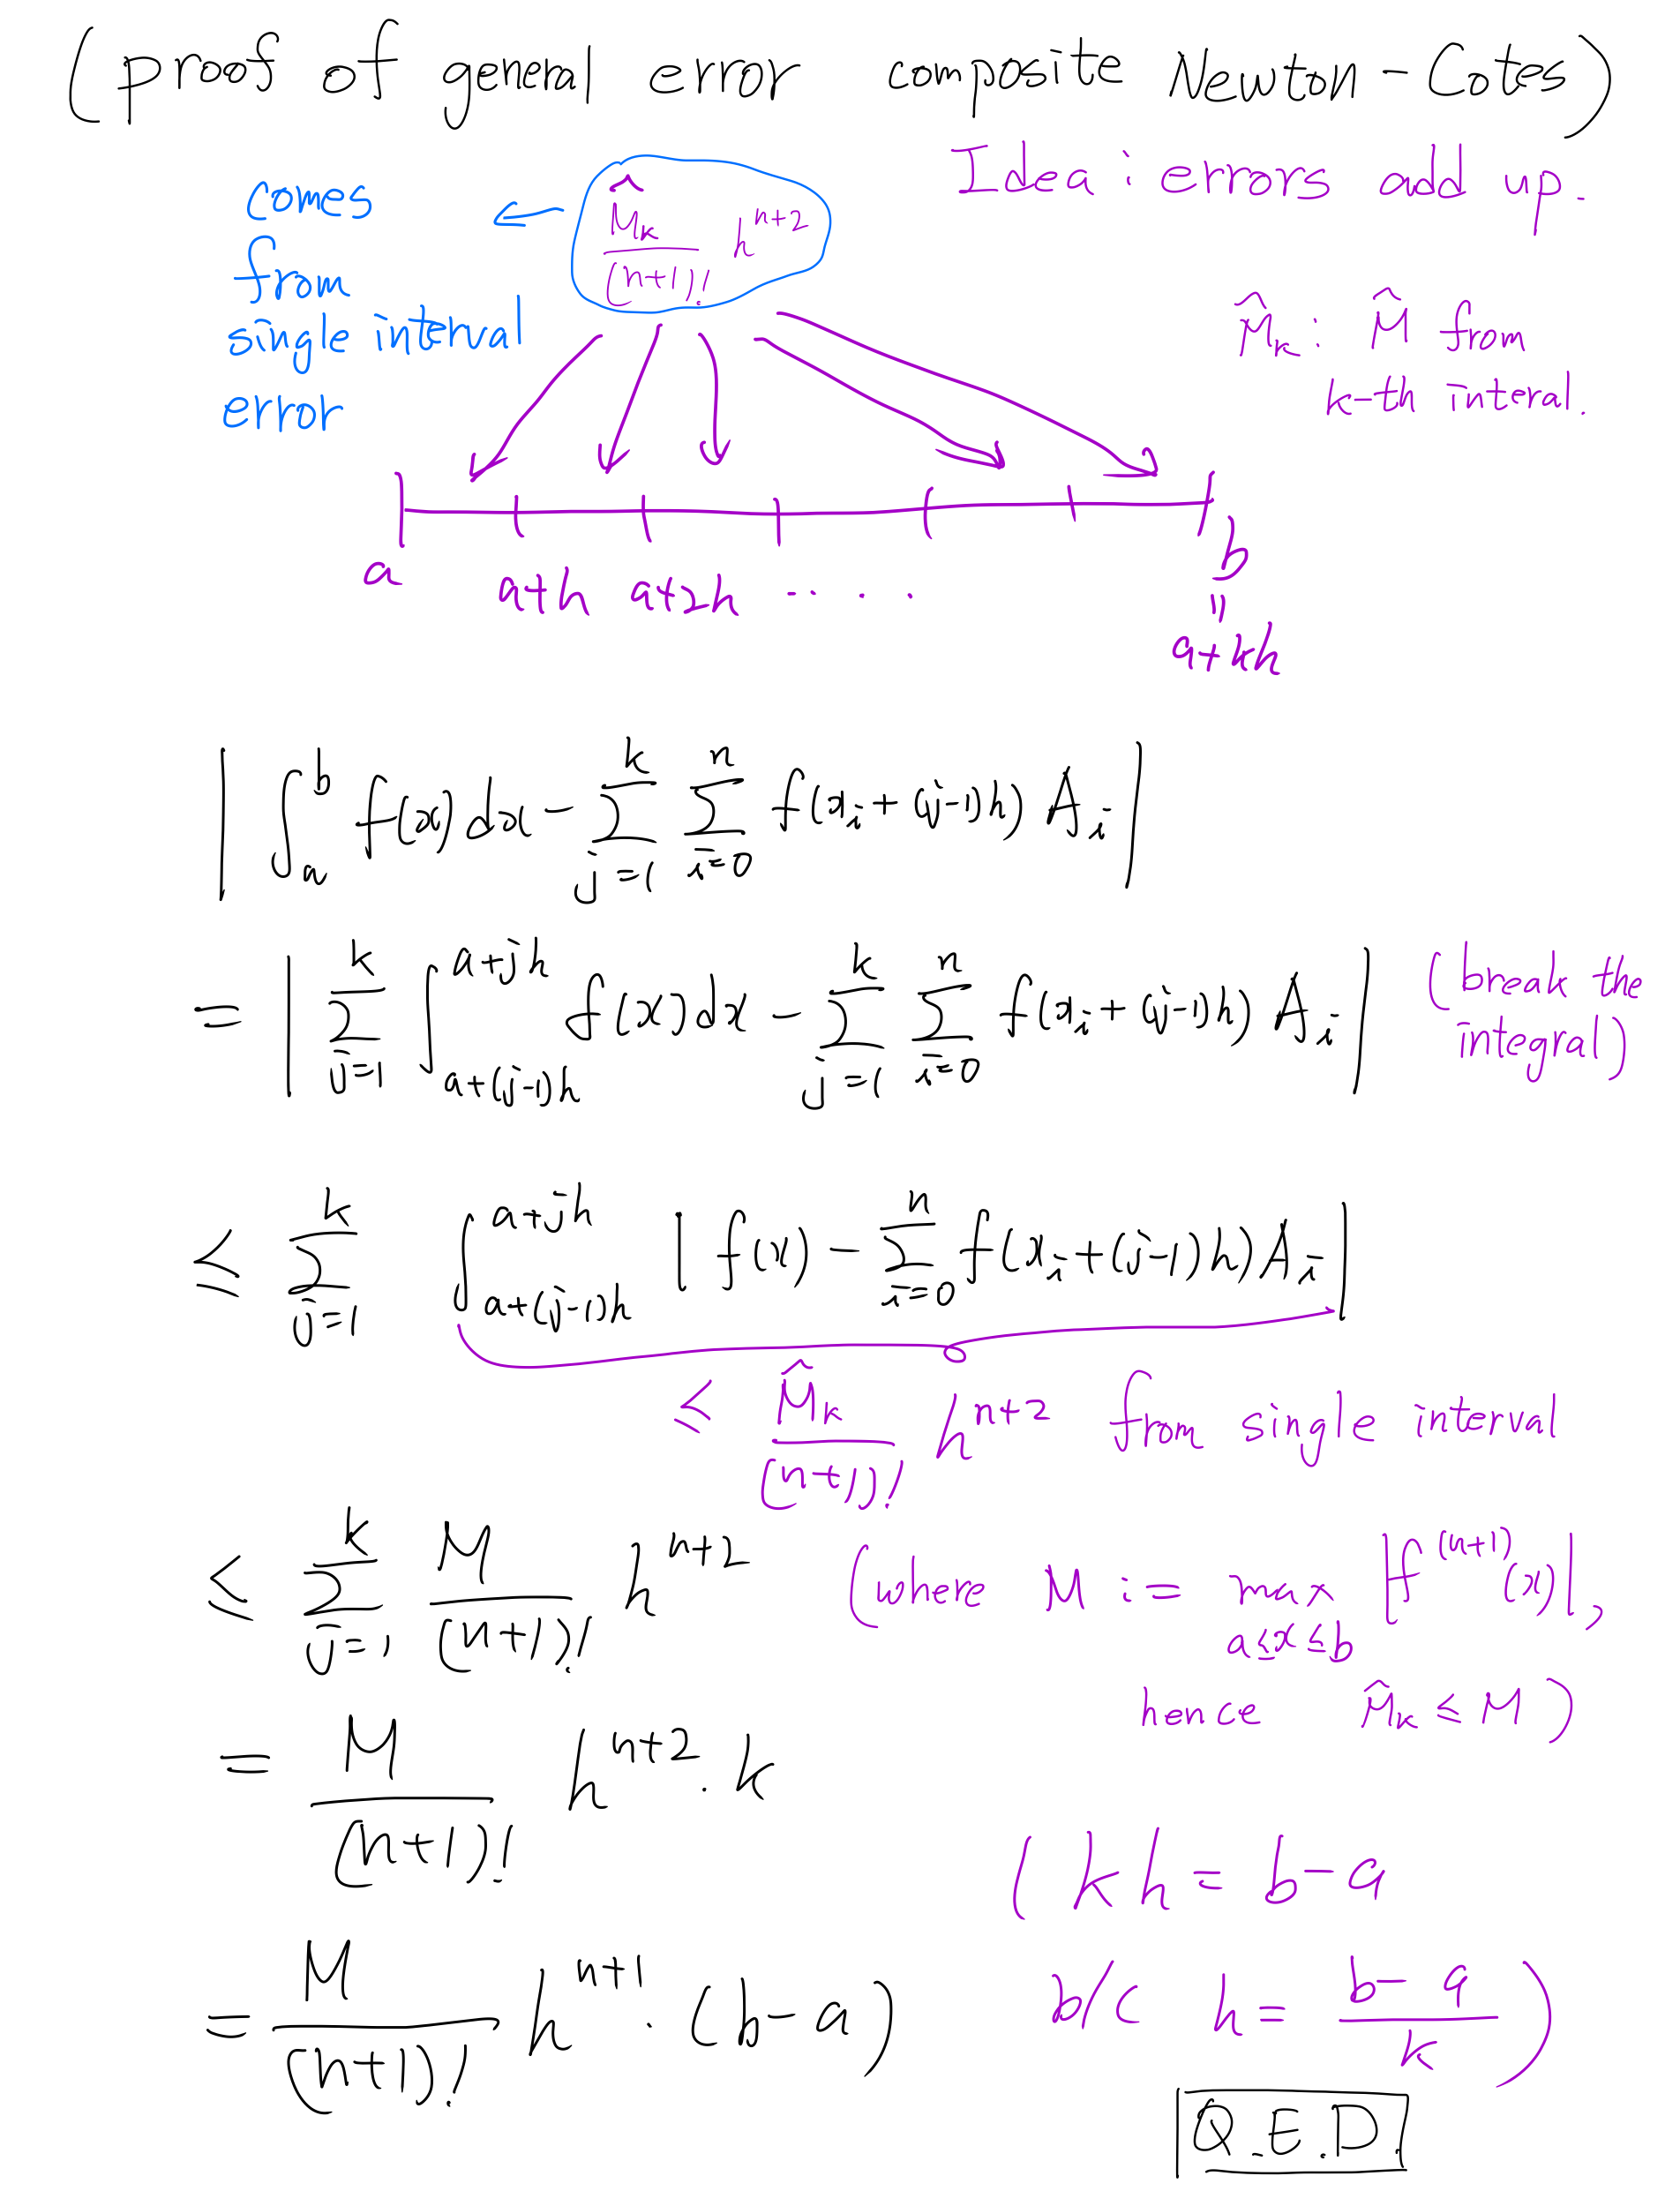 (proof of general error composite Newton-Cotes)
Idea: errors add up.
comes
from
single interval
error
← \frac{\hat{M}_k}{(n+1)!} h^{n+2}
\hat{M}_k: \hat{M} from
k-th interal.
a a+h a+2h ..... b
=
a+kh
| \int_a^b f(x)dx - \sum_{j=1}^k \sum_{i=0}^n f(x_i+(j-1)h) A_i |
= | \sum_{j=1}^k \int_{a+(j-1)h}^{a+jh} f(x)dx - \sum_{j=1}^k \sum_{i=0}^n f(x_i+(j-1)h) A_i | (break the
integral)
≤ \sum_{j=1}^k \int_{a+(j-1)h}^{a+jh} | f(x) - \sum_{i=0}^n f(x_i+(j-1)h) A_i |
≤ \frac{\hat{M}_k}{(n+1)!} h^{n+2} from single interval
≤ \sum_{j=1}^k \frac{M}{(n+1)!} h^{n+2} (where M := \max_{a≤x≤b} |f^{(n+1)}(x)|,
hence \hat{M}_k ≤ M)
= \frac{M}{(n+1)!} h^{n+2} · k
(kh = b-a
= \frac{M}{(n+1)!} h^{n+1} · (b-a) b/c h = \frac{b-a}{k})
Q.E.D.